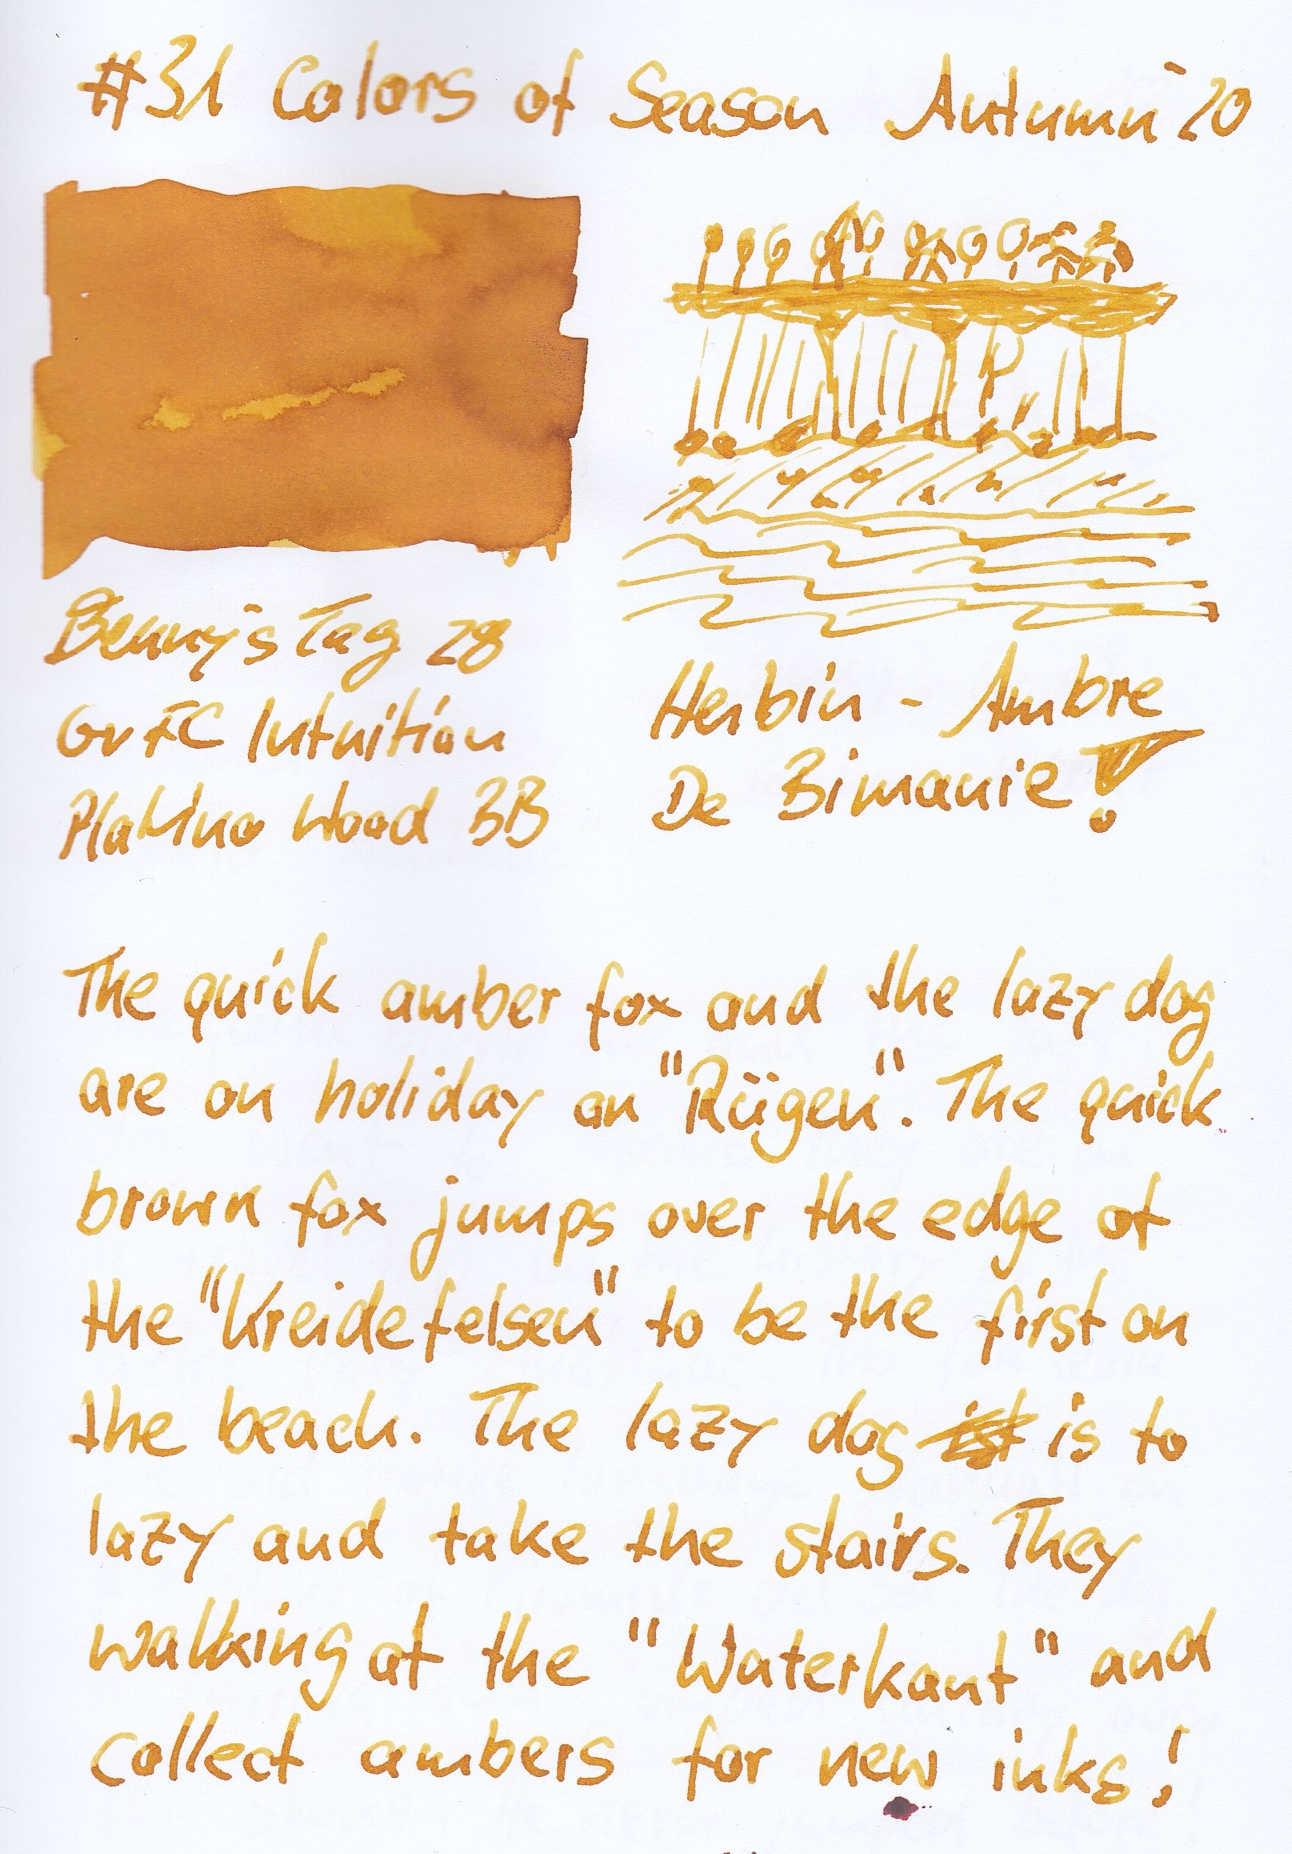 #31 Colors of Season Autumn '20
Benny's Tag 28
GvFC Intuition
Platino Wood BB
Herbin - Ambre
De Bimanie!
The quick amber fox and the lazy dog
are on holiday on "Rügen". The quick
brown fox jumps over the edge of
the "Kreidefelsen" to be the first on
the beach. The lazy dog ist is to
lazy and take the stairs. They
walking at the "Waterkant" and
collect ambers for new inks!